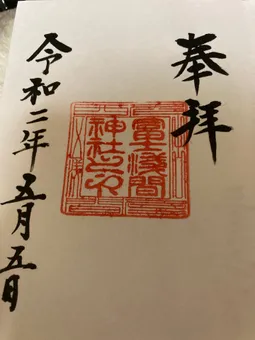 奉拝
富士淺間
神社之印
令和二年五月五日